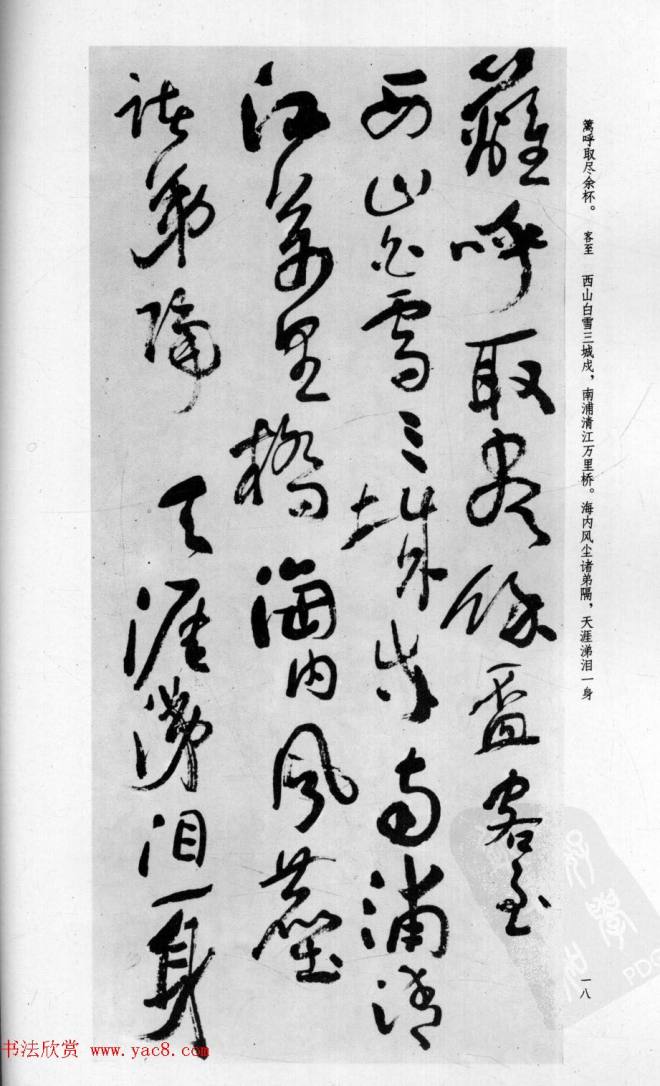 篱呼取尽余杯。 客至 西山白雪三城戍，南浦清江万里桥。海内风尘诸弟隔，天涯涕泪一身
籬呼取盡餘盃客至
西山白雪三城戍南浦清
江萬里橋海内風塵
諸弟隔天涯涕泪一身
一八
PDG
书法欣赏 www.yac8.com